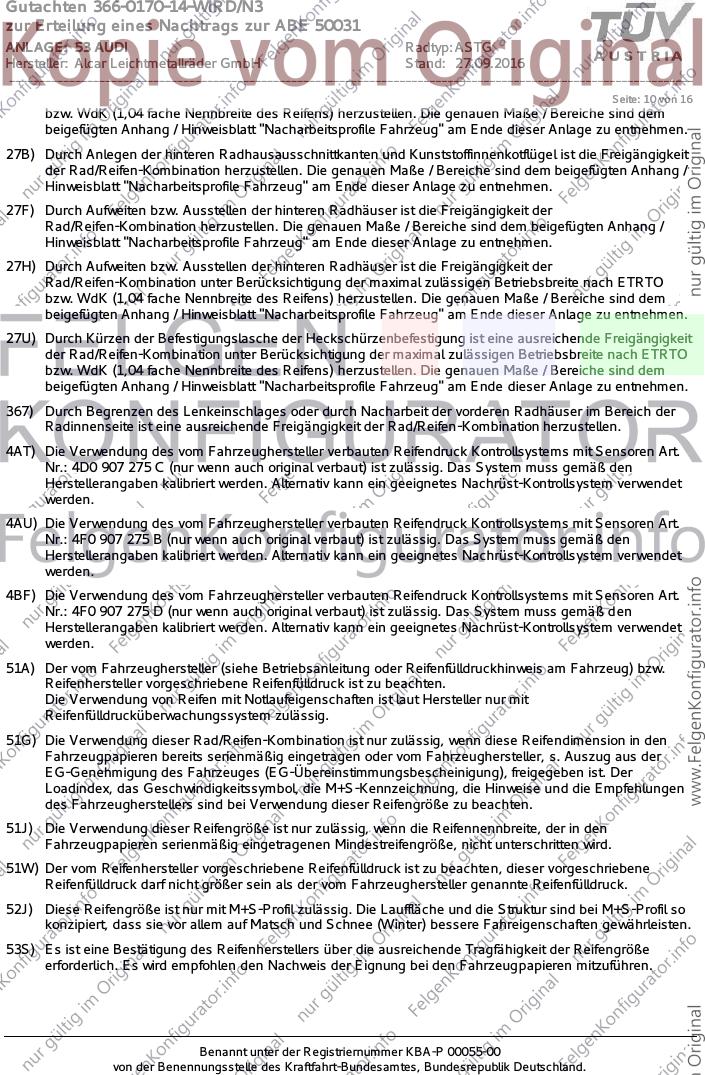 Gutachten 366-0170-14-WIRD/N3
zur Erteilung eines Nachtrags zur ABE 50031
ANLAGE: 53 AUDI Radtyp: ASTG
Hersteller: Alcar Leichtmetallräder GmbH Stand: 27.09.2016
TÜV
AUSTRIA
Kopie vom Original
Seite: 10 von 16
bzw. WdK (1,04 fache Nennbreite des Reifens) herzustellen. Die genauen Maße / Bereiche sind dem
beigefügten Anhang / Hinweisblatt "Nacharbeitsprofile Fahrzeug" am Ende dieser Anlage zu entnehmen.
27B) Durch Anlegen der hinteren Radhausausschnittkanten und Kunststoffinnenkotflügel ist die Freigängigkeit
der Rad/Reifen-Kombination herzustellen. Die genauen Maße / Bereiche sind dem beigefügten Anhang /
Hinweisblatt "Nacharbeitsprofile Fahrzeug" am Ende dieser Anlage zu entnehmen.
27F) Durch Aufweiten bzw. Ausstellen der hinteren Radhäuser ist die Freigängigkeit der
Rad/Reifen-Kombination herzustellen. Die genauen Maße / Bereiche sind dem beigefügten Anhang /
Hinweisblatt "Nacharbeitsprofile Fahrzeug" am Ende dieser Anlage zu entnehmen.
27H) Durch Aufweiten bzw. Ausstellen der hinteren Radhäuser ist die Freigängigkeit der
Rad/Reifen-Kombination unter Berücksichtigung der maximal zulässigen Betriebsbreite nach ETRTO
bzw. WdK (1,04 fache Nennbreite des Reifens) herzustellen. Die genauen Maße / Bereiche sind dem
beigefügten Anhang / Hinweisblatt "Nacharbeitsprofile Fahrzeug" am Ende dieser Anlage zu entnehmen.
27U) Durch Kürzen der Befestigungslasche der Heckschürzenbefestigung ist eine ausreichende Freigängigkeit
der Rad/Reifen-Kombination unter Berücksichtigung der maximal zulässigen Betriebsbreite nach ETRTO
bzw. WdK (1,04 fache Nennbreite des Reifens) herzustellen. Die genauen Maße / Bereiche sind dem
beigefügten Anhang / Hinweisblatt "Nacharbeitsprofile Fahrzeug" am Ende dieser Anlage zu entnehmen.
367) Durch Begrenzen des Lenkeinschlages oder durch Nacharbeit der vorderen Radhäuser im Bereich der
Radinnenseite ist eine ausreichende Freigängigkeit der Rad/Reifen-Kombination herzustellen.
4AT) Die Verwendung des vom Fahrzeughersteller verbauten Reifendruck Kontrollsystems mit Sensoren Art.
Nr.: 4D0 907 275 C (nur wenn auch original verbaut) ist zulässig. Das System muss gemäß den
Herstellerangaben kalibriert werden. Alternativ kann ein geeignetes Nachrüst-Kontrollsystem verwendet
werden.
4AU) Die Verwendung des vom Fahrzeughersteller verbauten Reifendruck Kontrollsystems mit Sensoren Art.
Nr.: 4F0 907 275 B (nur wenn auch original verbaut) ist zulässig. Das System muss gemäß den
Herstellerangaben kalibriert werden. Alternativ kann ein geeignetes Nachrüst-Kontrollsystem verwendet
werden.
4BF) Die Verwendung des vom Fahrzeughersteller verbauten Reifendruck Kontrollsystems mit Sensoren Art.
Nr.: 4F0 907 275 D (nur wenn auch original verbaut) ist zulässig. Das System muss gemäß den
Herstellerangaben kalibriert werden. Alternativ kann ein geeignetes Nachrüst-Kontrollsystem verwendet
werden.
51A) Der vom Fahrzeughersteller (siehe Betriebsanleitung oder Reifenfülldruckhinweis am Fahrzeug) bzw.
Reifenhersteller vorgeschriebene Reifenfülldruck ist zu beachten.
Die Verwendung von Reifen mit Notlaufeigenschaften ist laut Hersteller nur mit
Reifenfülldrucküberwachungssystem zulässig.
51G) Die Verwendung dieser Rad/Reifen-Kombination ist nur zulässig, wenn diese Reifendimension in den
Fahrzeugpapieren bereits serienmäßig eingetragen oder vom Fahrzeughersteller, s. Auszug aus der
EG-Genehmigung des Fahrzeuges (EG-Übereinstimmungsbescheinigung), freigegeben ist. Der
Loadindex, das Geschwindigkeitssymbol, die M+S-Kennzeichnung, die Hinweise und die Empfehlungen
des Fahrzeugherstellers sind bei Verwendung dieser Reifengröße zu beachten.
51J) Die Verwendung dieser Reifengröße ist nur zulässig, wenn die Reifennennbreite, der in den
Fahrzeugpapieren serienmäßig eingetragenen Mindestreifengröße, nicht unterschritten wird.
51W) Der vom Reifenhersteller vorgeschriebene Reifenfülldruck ist zu beachten, dieser vorgeschriebene
Reifenfülldruck darf nicht größer sein als der vom Fahrzeughersteller genannte Reifenfülldruck.
52J) Diese Reifengröße ist nur mit M+S-Profil zulässig. Die Lauffläche und die Struktur sind bei M+S-Profil so
konzipiert, dass sie vor allem auf Matsch und Schnee (Winter) bessere Fahreigenschaften gewährleisten.
53S) Es ist eine Bestätigung des Reifenherstellers über die ausreichende Tragfähigkeit der Reifengröße
erforderlich. Es wird empfohlen den Nachweis der Eignung bei den Fahrzeugpapieren mitzuführen.
FELGEN
KONFIGURATOR
FelgenKonfigurator.info
nur gültig im Original
www.FelgenKonfigurator.info
Benannt unter der Registriernummer KBA-P 00055-00
von der Benennungsstelle des Kraftfahrt-Bundesamtes, Bundesrepublik Deutschland.